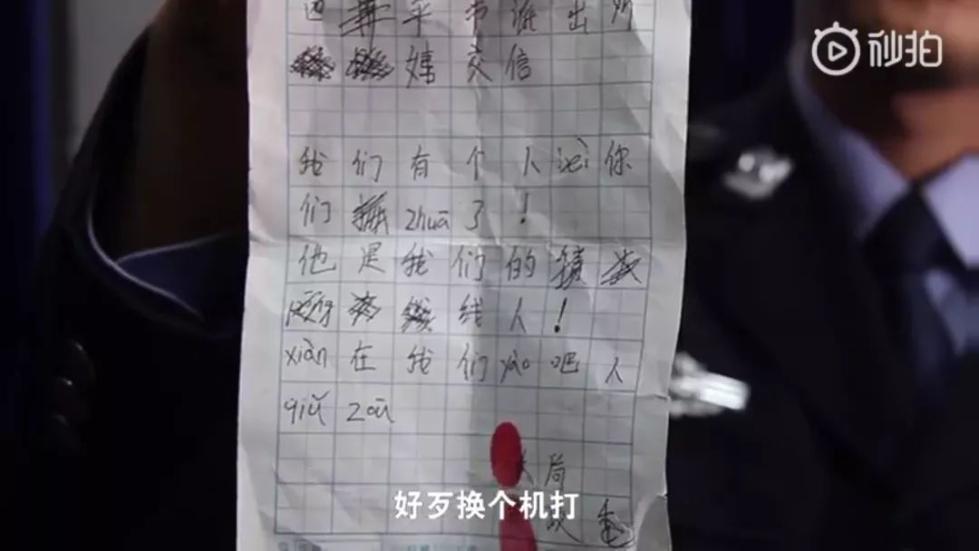 秒拍
平市派出所
交信
我们有个人bèi你
们zhuā了！
他是我们的
线人！
xiàn在我们yào吧人
qiǔ zǒu
局
好歹换个机打